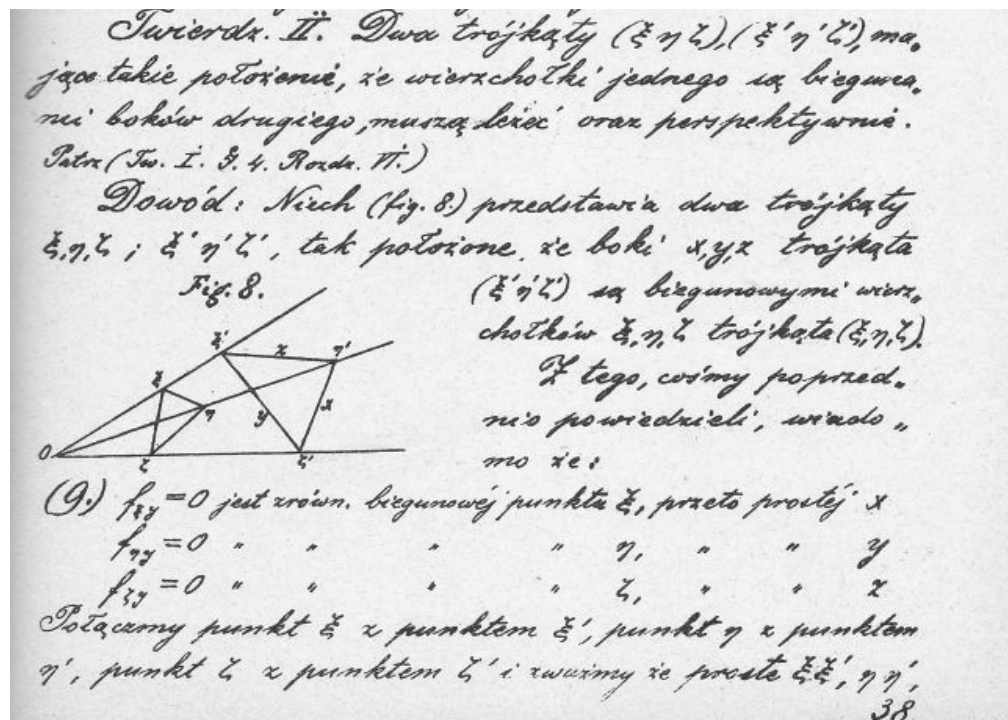 Twierdz. II. Dwa trójkąty (ξ η ζ), (ξ' η' ζ'), ma„
jące takie położenie, że wierzchołki jednego są bieguna„
mi boków drugiego, muszą leżeć oraz perspektywnie.
Patrz (Tw. I. §. 4. Rozdz. VI.)
Dowód: Niech (fig. 8.) przedstawia dwa trójkąty
ξ, η, ζ ; ξ' η' ζ', tak położone, że boki x, y, z trójkąta
Fig. 8.
(ξ' η' ζ') są biegunowymi wierz„
chołków ξ, η, ζ trójkąta (ξ, η, ζ).
Z tego, cośmy poprzed„
nio powiedzieli, wiado„
mo że:
ξ' z η'
ξ η y x
O ζ ζ'
(9.) f_ξy = 0 jest zrówn. biegunowéj punktu ξ, przeto prostéj x
f_ηy = 0 " " " " η, " " y
f_ζy = 0 " " " " ζ, " " z
Połączmy punkt ξ z punktem ξ', punkt η z punktem
η', punkt ζ z punktem ζ' i zważmy że proste ξξ', ηη',
38